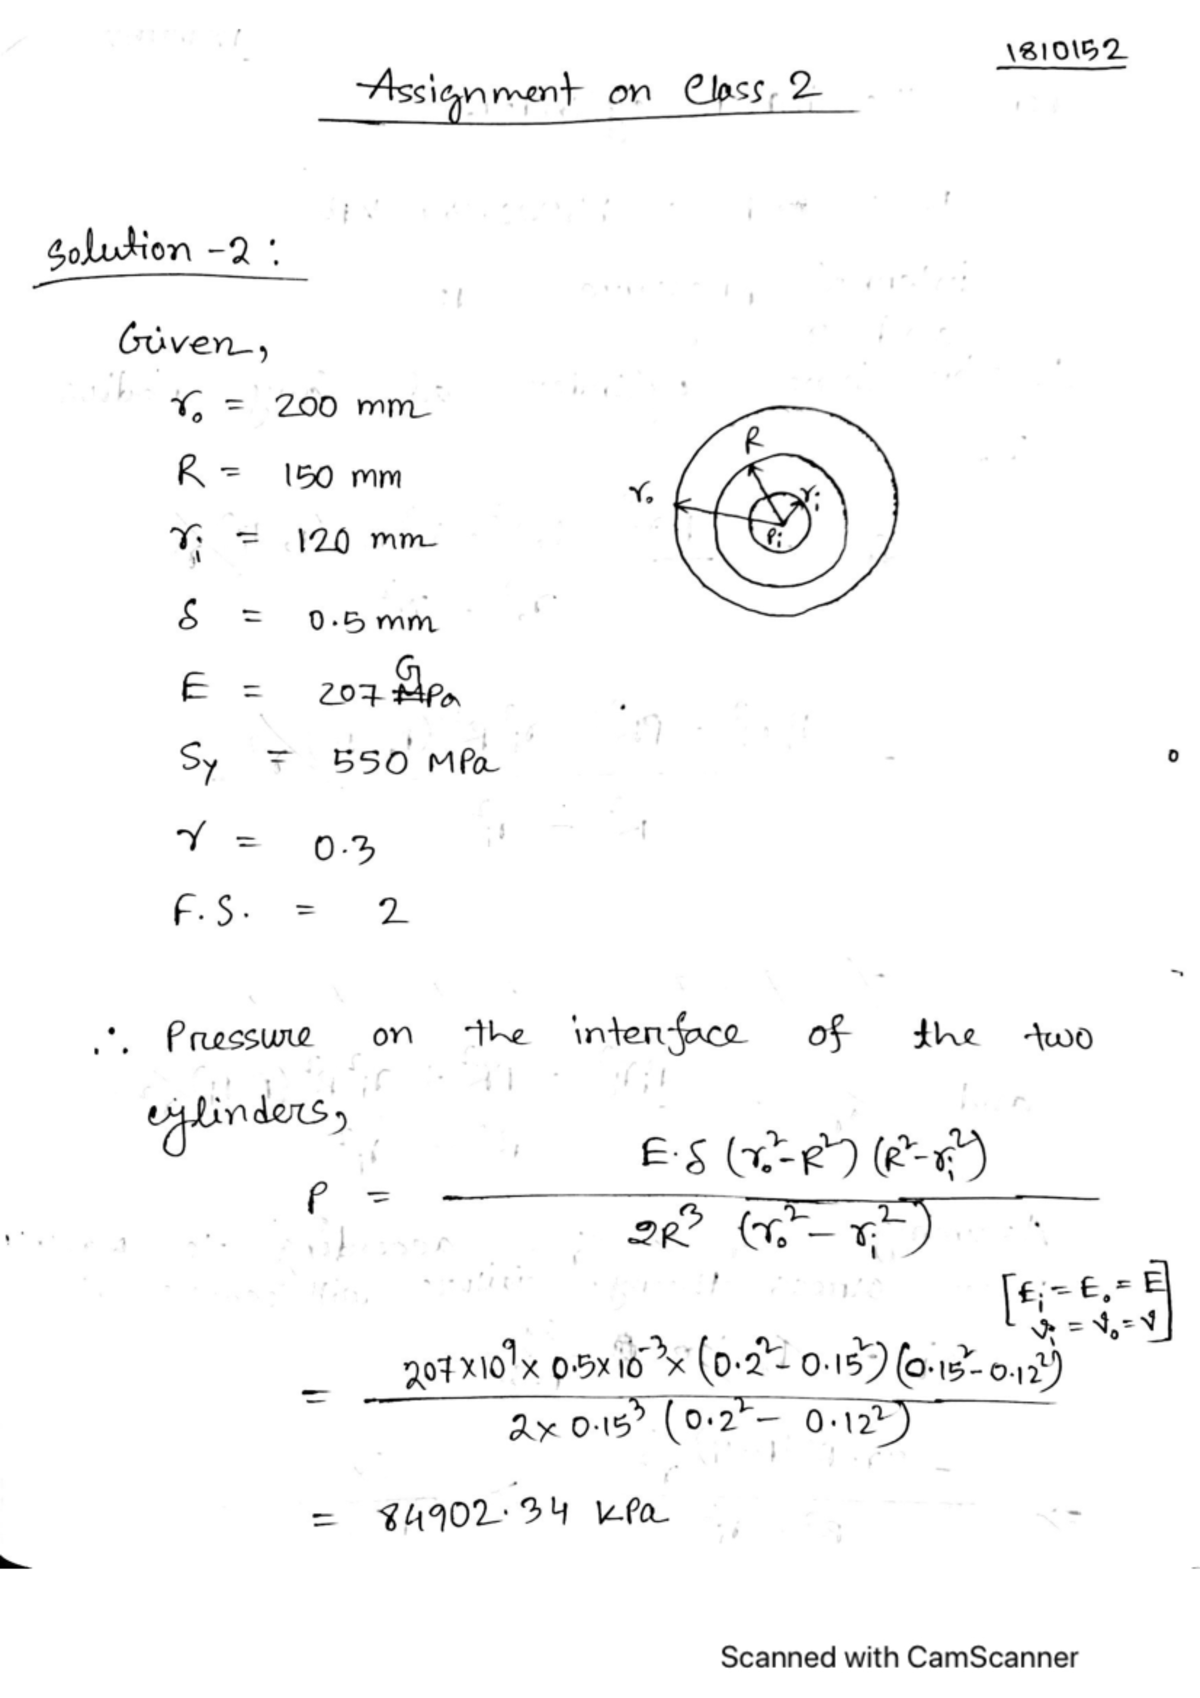 1810152
Assignment on Class 2
Solution -2:
Given,
r₀ = 200 mm
R = 150 mm
rᵢ = 120 mm
δ = 0.5 mm
E = 207 GPa
Sy = 550 MPa
γ = 0.3
F.S. = 2
R
r₀
rᵢ
Pᵢ
∴ Pressure on the interface of the two
cylinders,
P = E·δ (r₀²-R²) (R²-rᵢ²) / 2R³ (r₀²-rᵢ²)
[Eᵢ = E₀ = E
νᵢ = ν₀ = ν]
= 207×10⁹× 0.5×10⁻³× (0.2²-0.15²) (0.15²-0.12²) / 2× 0.15³ (0.2²- 0.12²)
= 84902.34 kPa
Scanned with CamScanner